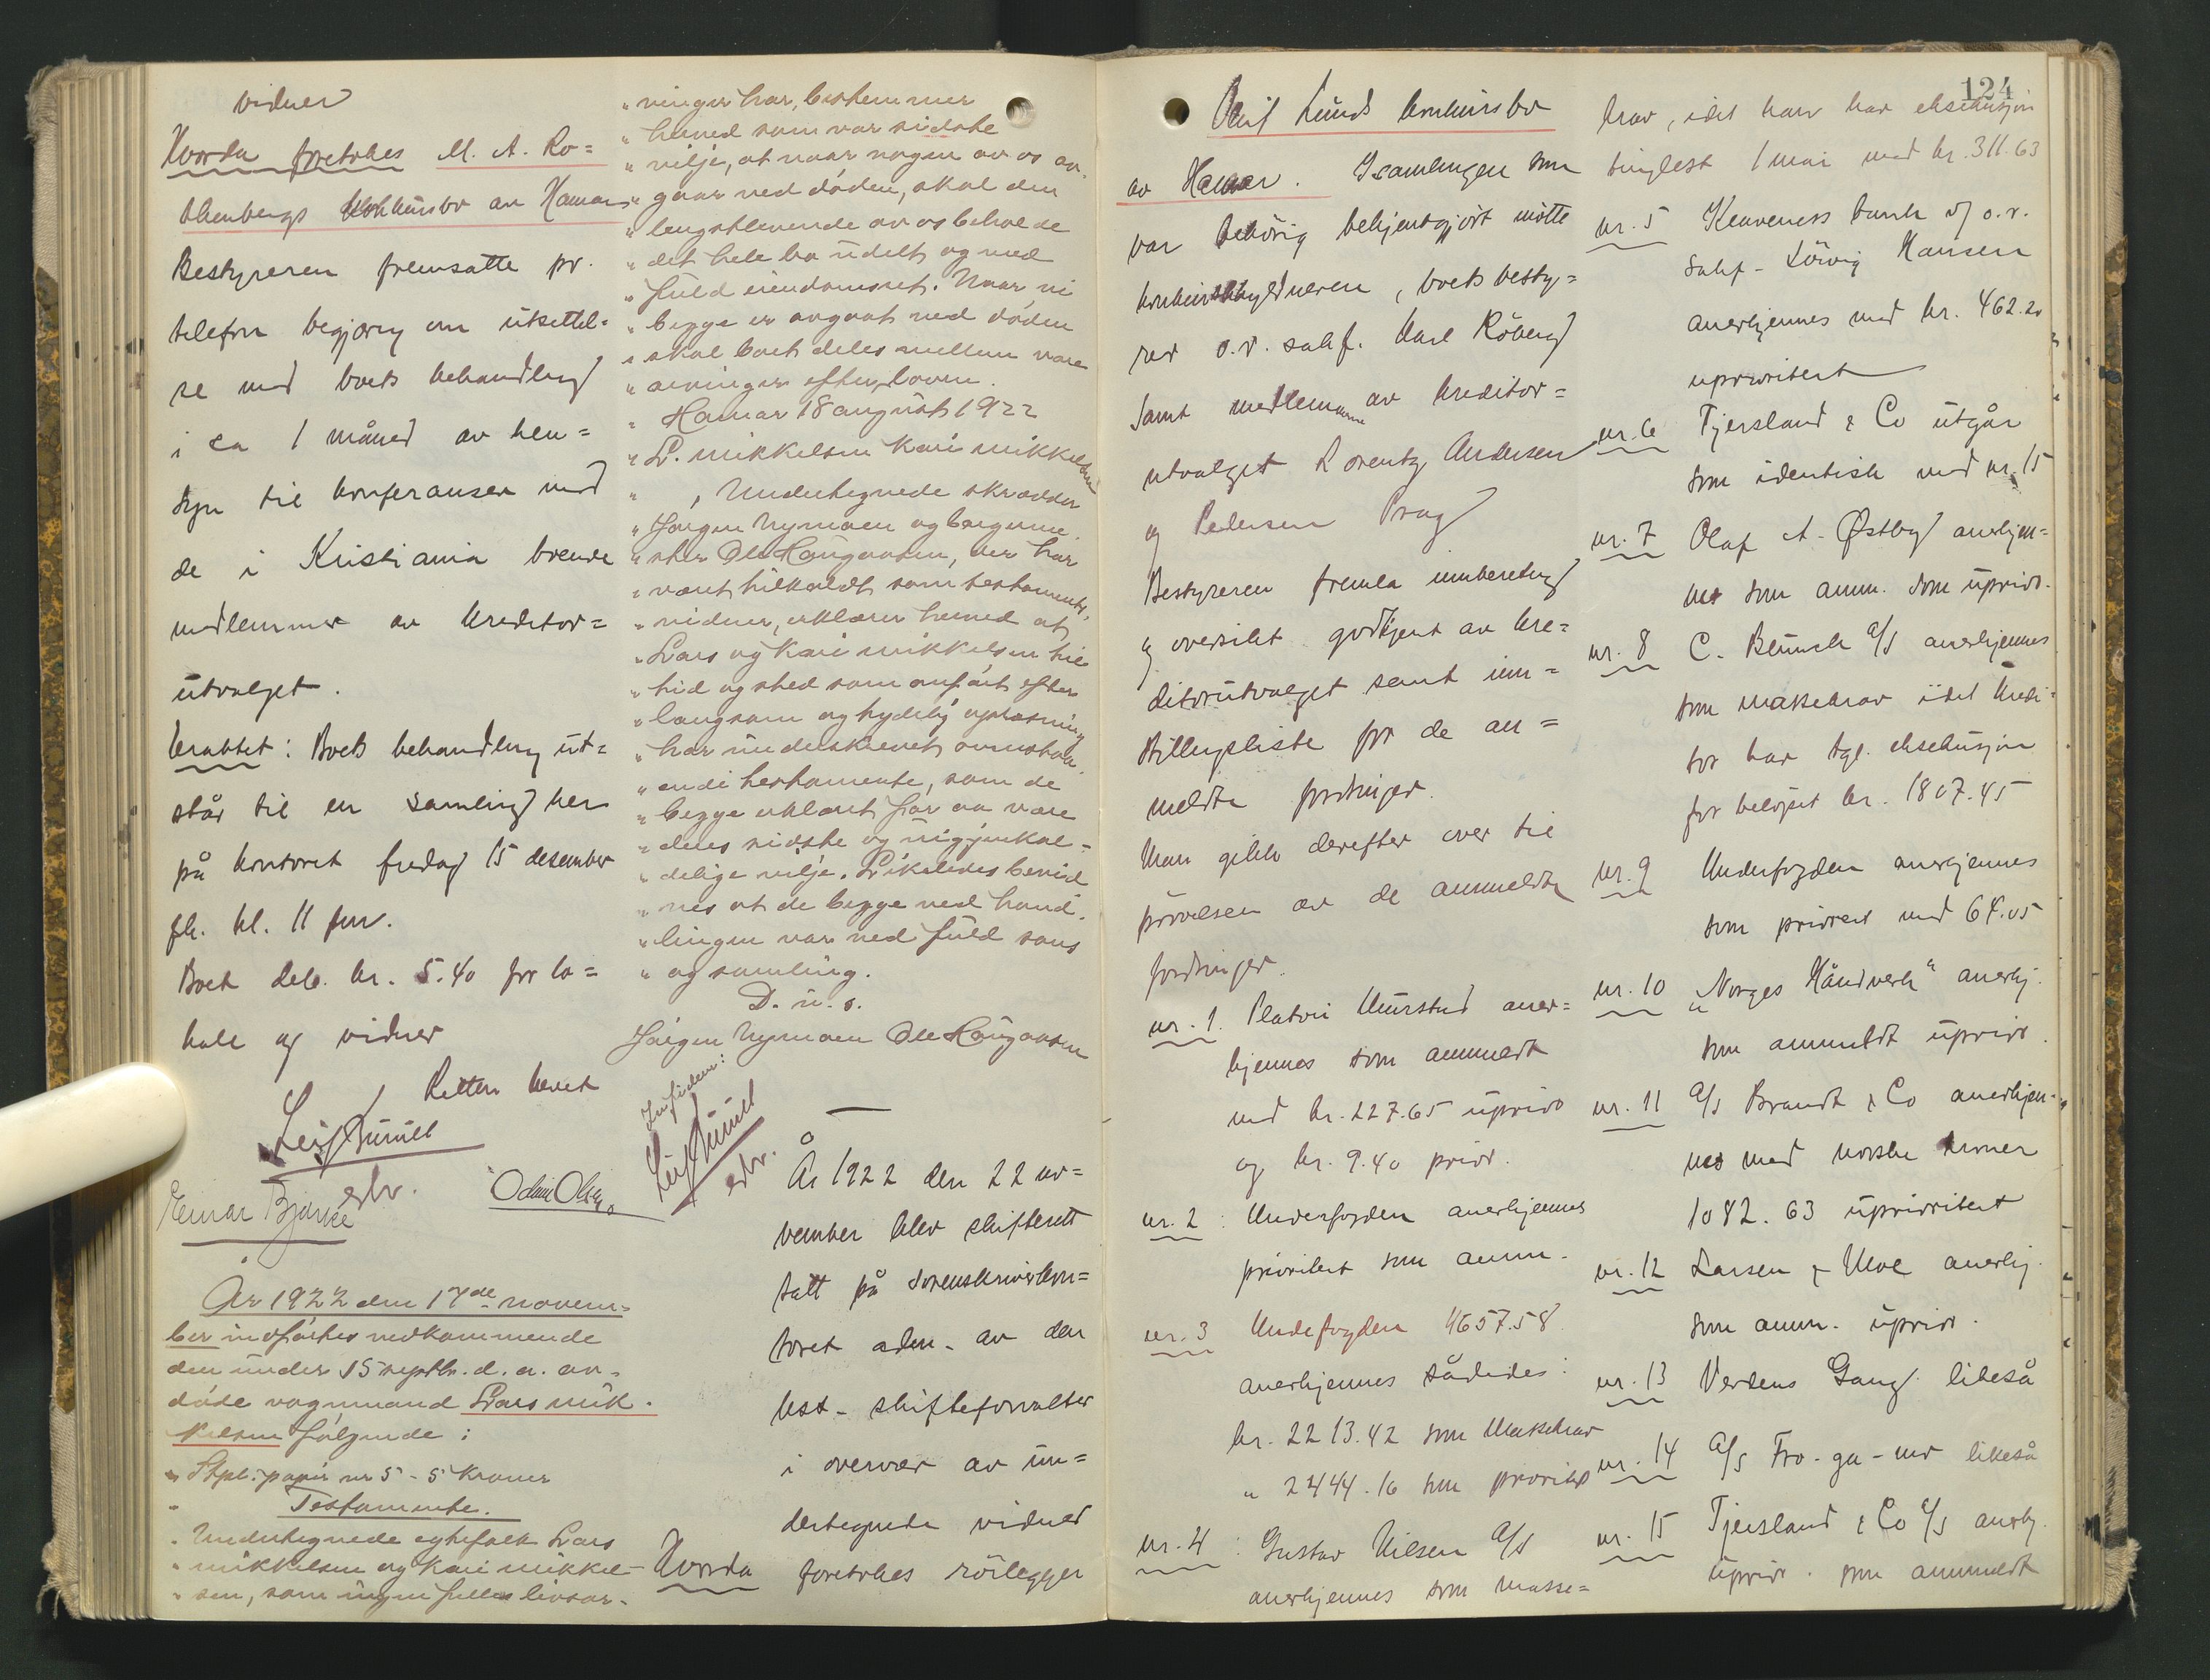 vidner
Hvorda foretokes M. A. Ro=
thenbergs konkursbo av Hamar
Bestyreren fremsatte pr.
telefon begjæring om utsettel=
se med boets behandling
i ca 1 måned av hen=
syn til konferanser med
de i Kristiania boende
medlemmer av kreditor=
utvalget.
Beroktet: Boets behandling ut=
står til en samling her
på kontoret fredag 15 desember
fk. kl. 11 fm.
Boet deb. kr. 5.40 for lo=
kale og vidner
Retten hevet
Leif
sbr.
Einar Bjarke
Odin Olsen
Aar 1922 den 17de novem=
ber indførtes vedkommende
den under 15 septbr. d. a. av=
døde vognmand Lars Mik=
kelsen følgende:
" Stpl. papir nr 5 - 5 kroner
" Testamente.
" Undertegnede egtefolk Lars
" Mikkelsen og Kari Mikkel=
" sen, som ingen felles livsar=
" vinger har, bestemmer
" herved som vor sidste
" vilje, at naar nogen av os av=
" gaar ved døden, skal den
" lengstlevende av os beholde
" det hele bo udelt og med
" fuld eiendomsret. Naar vi
" begge er avgaat ved døden
" skal boet deles mellem vore
" arvinger efter loven.
" Hamar 18 august 1922
" L. Mikkelsen Kari Mikkelsen
" , Undertegnede skrædder
" Jørgen Nymoen og
" Ole Haugaasen, der har
" været tilkaldt som testaments=
" vidner, erklærer herved at
" Lars og Kari Mikkelsen til
" tid og sted som anført efter
" langsom og tydelig oplæsning
" har underskrevet ovenstaa=
" ende testamente, som de
" begge erklært for aa være
" deres sidste og uigjenkal=
" delige vilje. Likeledes bevid
" nes at de begge ved hand=
" lingen var ved fuld sans
" og samling.
D. u. s.
Jørgen Nymoen Ole Haugaasen
In fidem:
Leif
sbr.
År 1922 den 22 no=
vember blev skifterett
satt på sorenskriverkon=
toret adm. av den
kst. skifteforvalter
i overvær av un=
dertegnede vidner
Hvorda foretokes rørlegger
124
Leif Lunds konkursbo
av Hamar. I samlingen som
var behørig bekjentgjørt møtte
konkursskyldneren, boets besty=
rer o.r. sakf. Karl Röberg
samt medlemmerne av kreditor=
utvalget Lorentz Andersen
og Pedersen Prag
Bestyreren fremla innberetning
og oversikt godkjent av kre=
ditorutvalget samt inn=
stillingsliste for de an=
meldte fordringer.
Man gikk derefter over til
prøvelsen av de anmeldte
fordringer.
nr. 1. Platou Murstad aner=
kjennes som anmeldt
med kr. 227.65 uprior
og kr. 9.40 prior.
nr. 2 : Underfogden anerkjennes
prioritert som anm.
nr. 3 Underfogden 4657.58
anerkjennes således:
kr. 2213.42 som Massekrav
" 2444.16 som prioritet
nr. 4 : Gustav Nilsen A/S
anerkjennes som masse=
krav, idet han har eksekusjon
tinglest 1 mai med kr. 311.63
nr. 5 Kenvenerss bank v/ o.r.
sakf. Lövig Hansen
anerkjennes med kr. 462.20
uprioritert
nr. 6 Tjersland & Co utgår
som identisk med nr. 15
nr. 7 Olaf A. Østby anerkjen=
nes som anm. som uprior.
nr. 8 C. Blunck A/S anerkjennes
som massekrav idet kredi=
tor har tgl. eksekusjon
for beløpet kr. 1807.45
nr. 9 Underfogden anerkjennes
som priorert med 64.05
nr. 10 „Norges Håndverk" anerkj.
som anmeldt uprior.
nr. 11 A/S Brandt & Co anerkjen=
nes med norske kroner
1082.63 uprioritert
nr. 12 Larsen & Moe anerkj.
som anm. uprior.
nr. 13 Verdens Gang likeså
nr. 14 A/S Fro-ga-no likeså
nr. 15 Tjersland & Co A/S anerkj.
uprior. som anmeldt